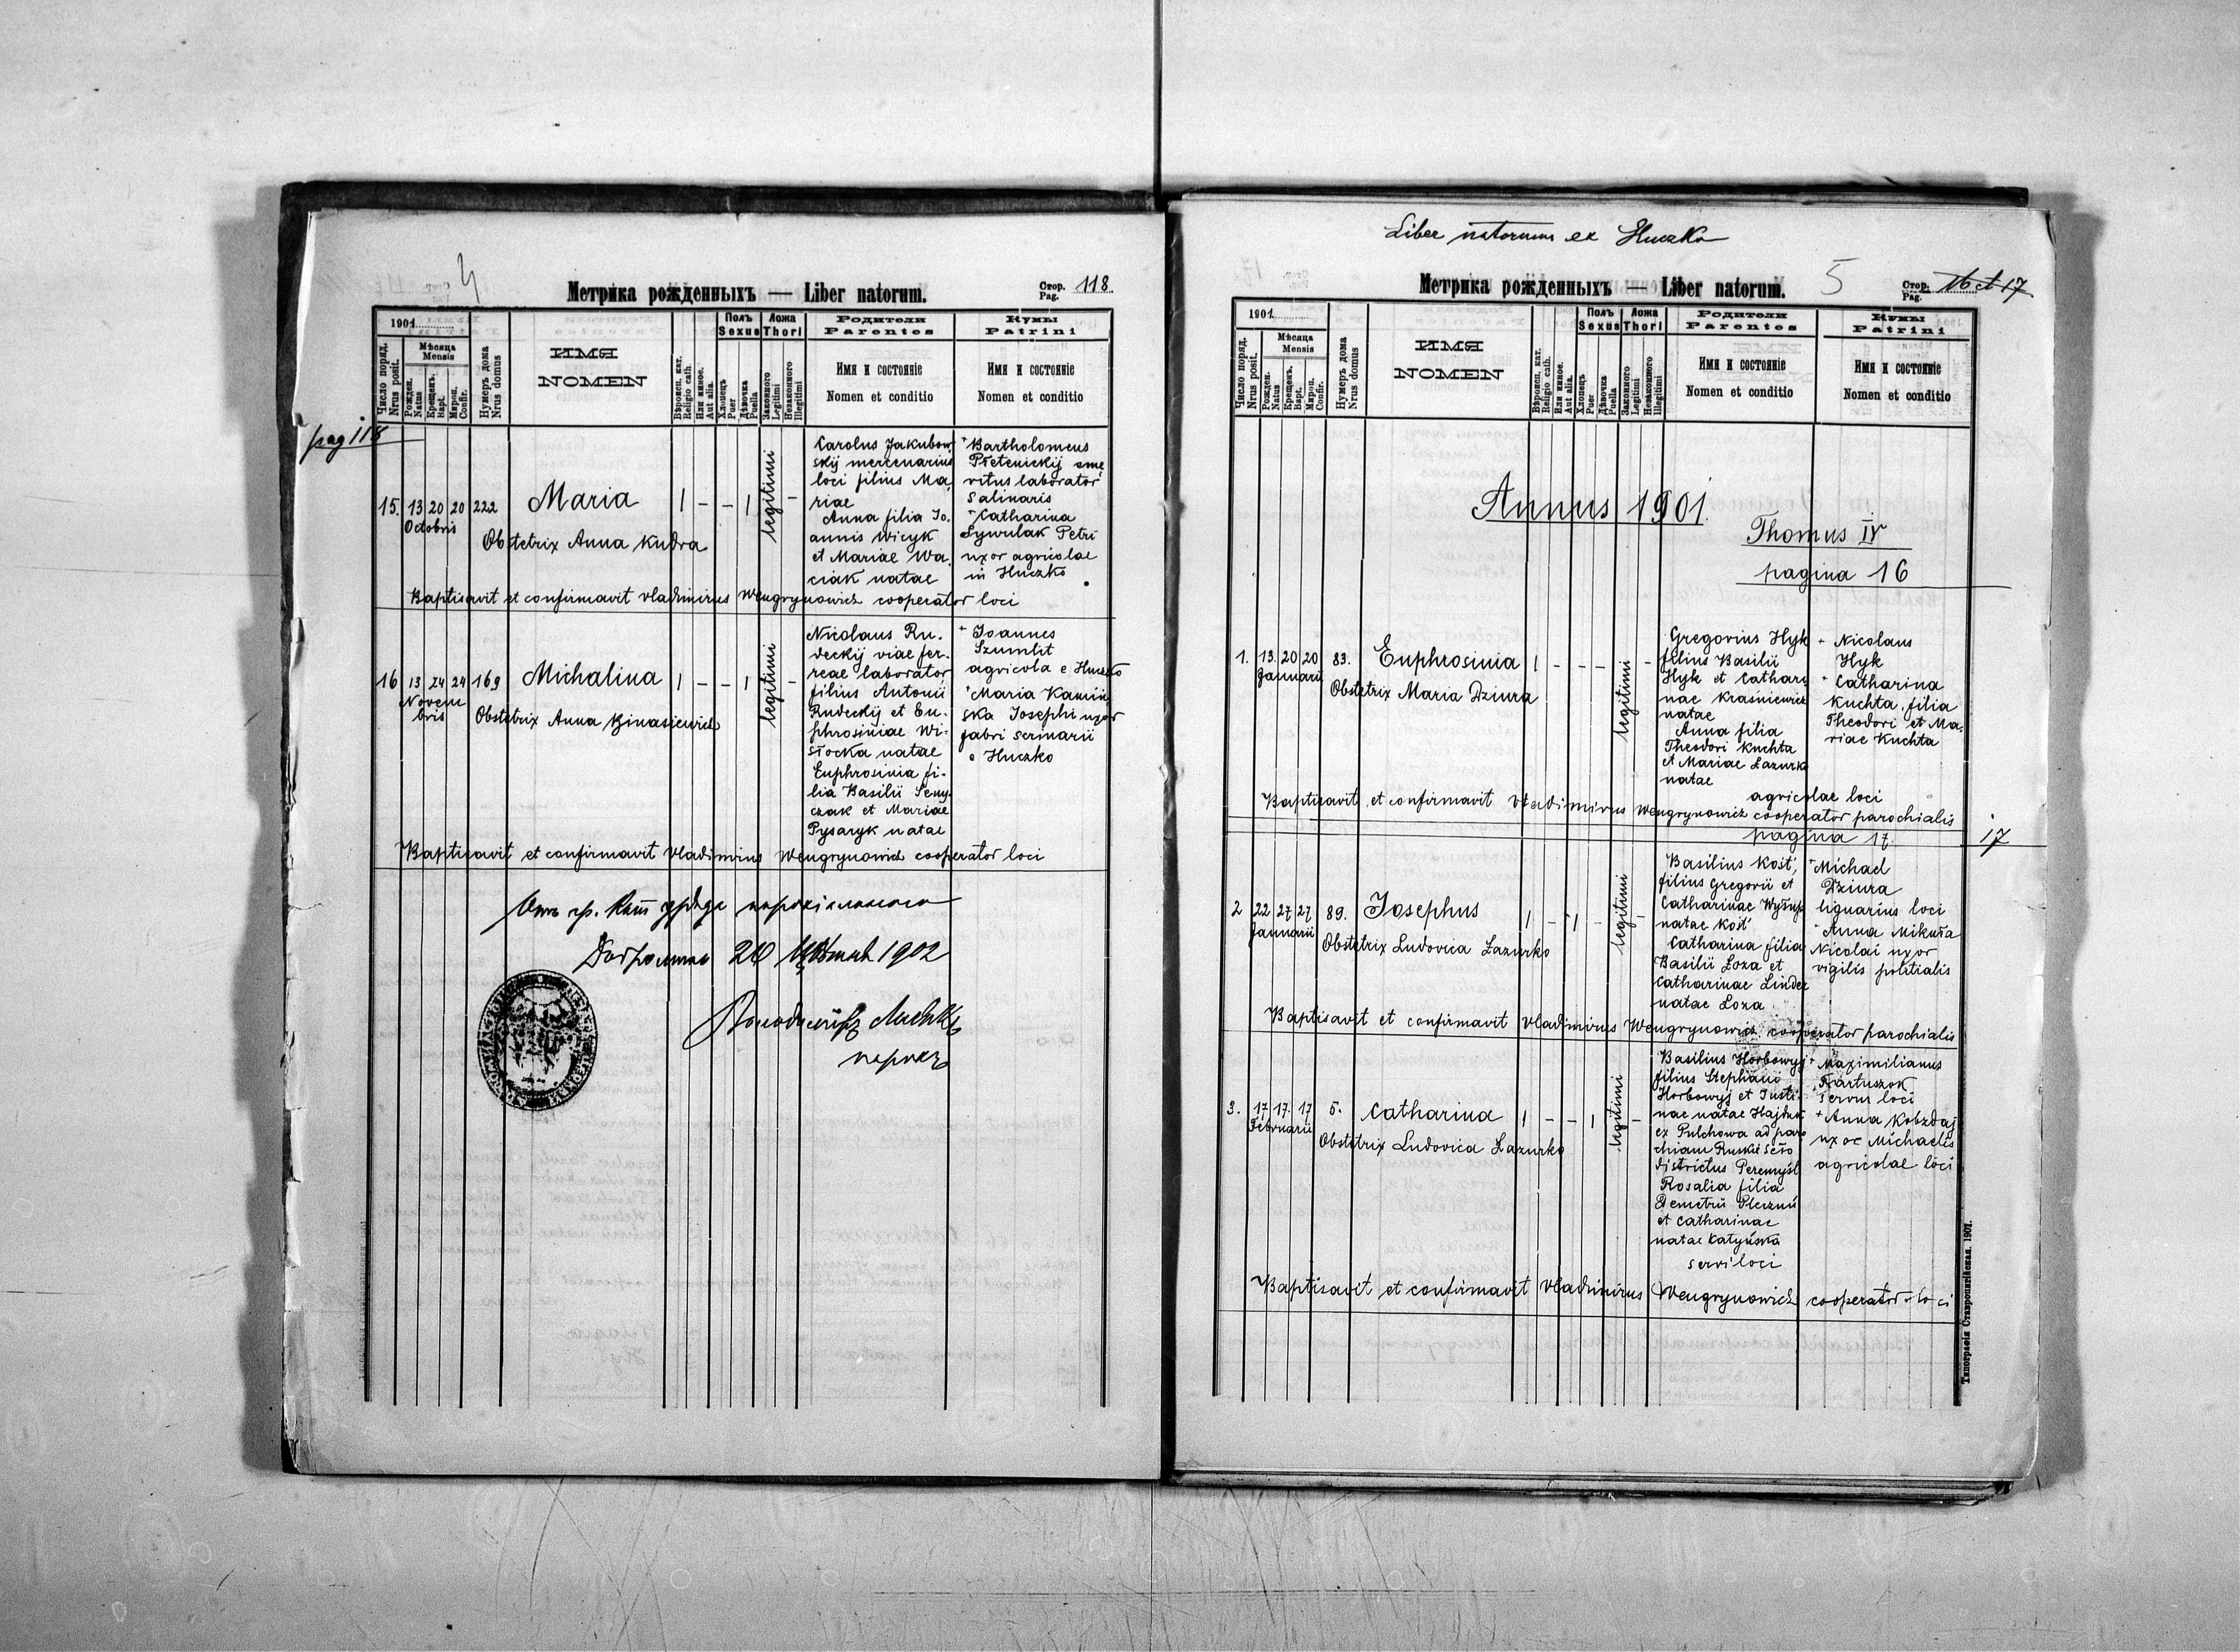 4
Метрика рожденныхъ — Liber natorum.
Стор. Pag. 118
1901
Число поряд. Nrus posit.
Мѣсяца Mensis
Рожден. Natus
Крещенъ. Bapt.
Мѵроп. Confir.
Нумеръ дома Nrus domus
ИМЯ
NOMEN
Вѣроисп. кат. Religio cath.
Или иное. Aut alia.
Полъ Sexus
Хлопецъ Puer
Дѣвочка Puella
Ложа Thori
Законного Legitimi
Незаконного Illegitimi
Родители
Parentes
Имя и состояніе
Nomen et conditio
Кумы
Patrini
Имя и состояніе
Nomen et conditio
pag 118
15. 13 20 20 222 Maria 1 - - 1 legitimi -
Octobris
Obstetrix Anna Kudra
Carolus Jakubow
skij mercenarius
loci filius Ma
riae
Anna filia Jo.
annis Wicyk
et Mariae Wa.
ciak natae
+ Bartholomeus
Pletenickij eme
ritus laborator
salinaris
+ Catharina
Sywulak Petri
uxor agricolae
in Huczko
Baptisavit et confirmavit Vladimirus Wengrynowicz cooperator loci
16 13 24 24 169 Michalina 1 - - 1 legitimi -
Novem
bris
Obstetrix Anna Kinasiewicz
Nicolaus Ru.
deckij viae fer-
reae laborator
filius Antonii
Rudeckij et Eu-
phrosiniae Wi-
słocka natae
Euphrosinia fi-
lia Basilii Seny
czak et Mariae
Pysaryk natae
+ Joannes
Szumlit
agricola e Huczko
+ Maria Kamiń
ska Josephi uxor
fabri scrinarii
e Huczko
Baptisavit et confirmavit Vladimirus Wengrynowicz cooperator loci
Отъ гр. кат уряда парохіяльного
Добромиль 20 1902
парохъ
Liber natorum ex Huczko
Метрика рожденныхъ — Liber natorum.
5
Стор. Pag. 16 et 17
1901
Число поряд. Nrus posit.
Мѣсяца Mensis
Рожден. Natus
Крещенъ. Bapt.
Мѵроп. Confir.
Нумеръ дома Nrus domus
ИМЯ
NOMEN
Вѣроисп. кат. Religio cath.
Или иное. Aut alia.
Полъ Sexus
Хлопецъ Puer
Дѣвочка Puella
Ложа Thori
Законного Legitimi
Незаконного Illegitimi
Родители
Parentes
Имя и состояніе
Nomen et conditio
Кумы
Patrini
Имя и состояніе
Nomen et conditio
Annus 1901.
Thomus IV
pagina 16
1. 13. 20 20 83. Euphrosinia 1 - - - legitimi -
Januarii
Obstetrix Maria Dziura
Gregorius Hyk
filius Basilii
Hyk et Cathari
nae Kraśniewicz
natae
Anna filia
Theodori Kuchta
et Mariae Łazurko
natae
agricolae loci
+ Nicolaus
Hyk
+ Catharina
Kuchta, filia
Theodori et Ma,
riae Kuchta
Baptisavit et confirmavit Vladimirus Wengrynowicz cooperator parochialis
pagina 17.
17
2 22 27 27 89. Josephus 1 - 1 - legitimi -
Januarii
Obstetrix Ludovica Łazurko
Basilius Kość,
filius Gregorii et
Catharinae Wyłup
natae Kość
Catharina filia
Basilii Łoza et
Catharinae Linder
natae Łoza
+ Michael
Dziura
lignarius loci
+ Anna Mikuła
Nicolai uxor
vigilis politialis
Baptisavit et confirmavit Vladimirus Wengrynowicz cooperator parochialis
3. 17 17. 17 5. Catharina 1 - - 1 legitimi -
Februarii
Obstetrix Ludovica Łazurko
Basilius Horbowyj
filius Stephani
Horbowyj et Justi-
nae natae Hajduk
ex Pulchowa ad paro
chiam Ruskie Sěło
districtus Peremyśl
Rosalia filia
Demetrii
et Catharinae
natae Katyńska
servi loci
+ Maximilianus
Fartuszok
servus loci
+ Anna Kobzdaj
uxor Michaelis
agricolae loci
Baptisavit et confirmavit Vladimirus Wengrynowicz cooperator loci
Типографія Ставропигійская. 1901.